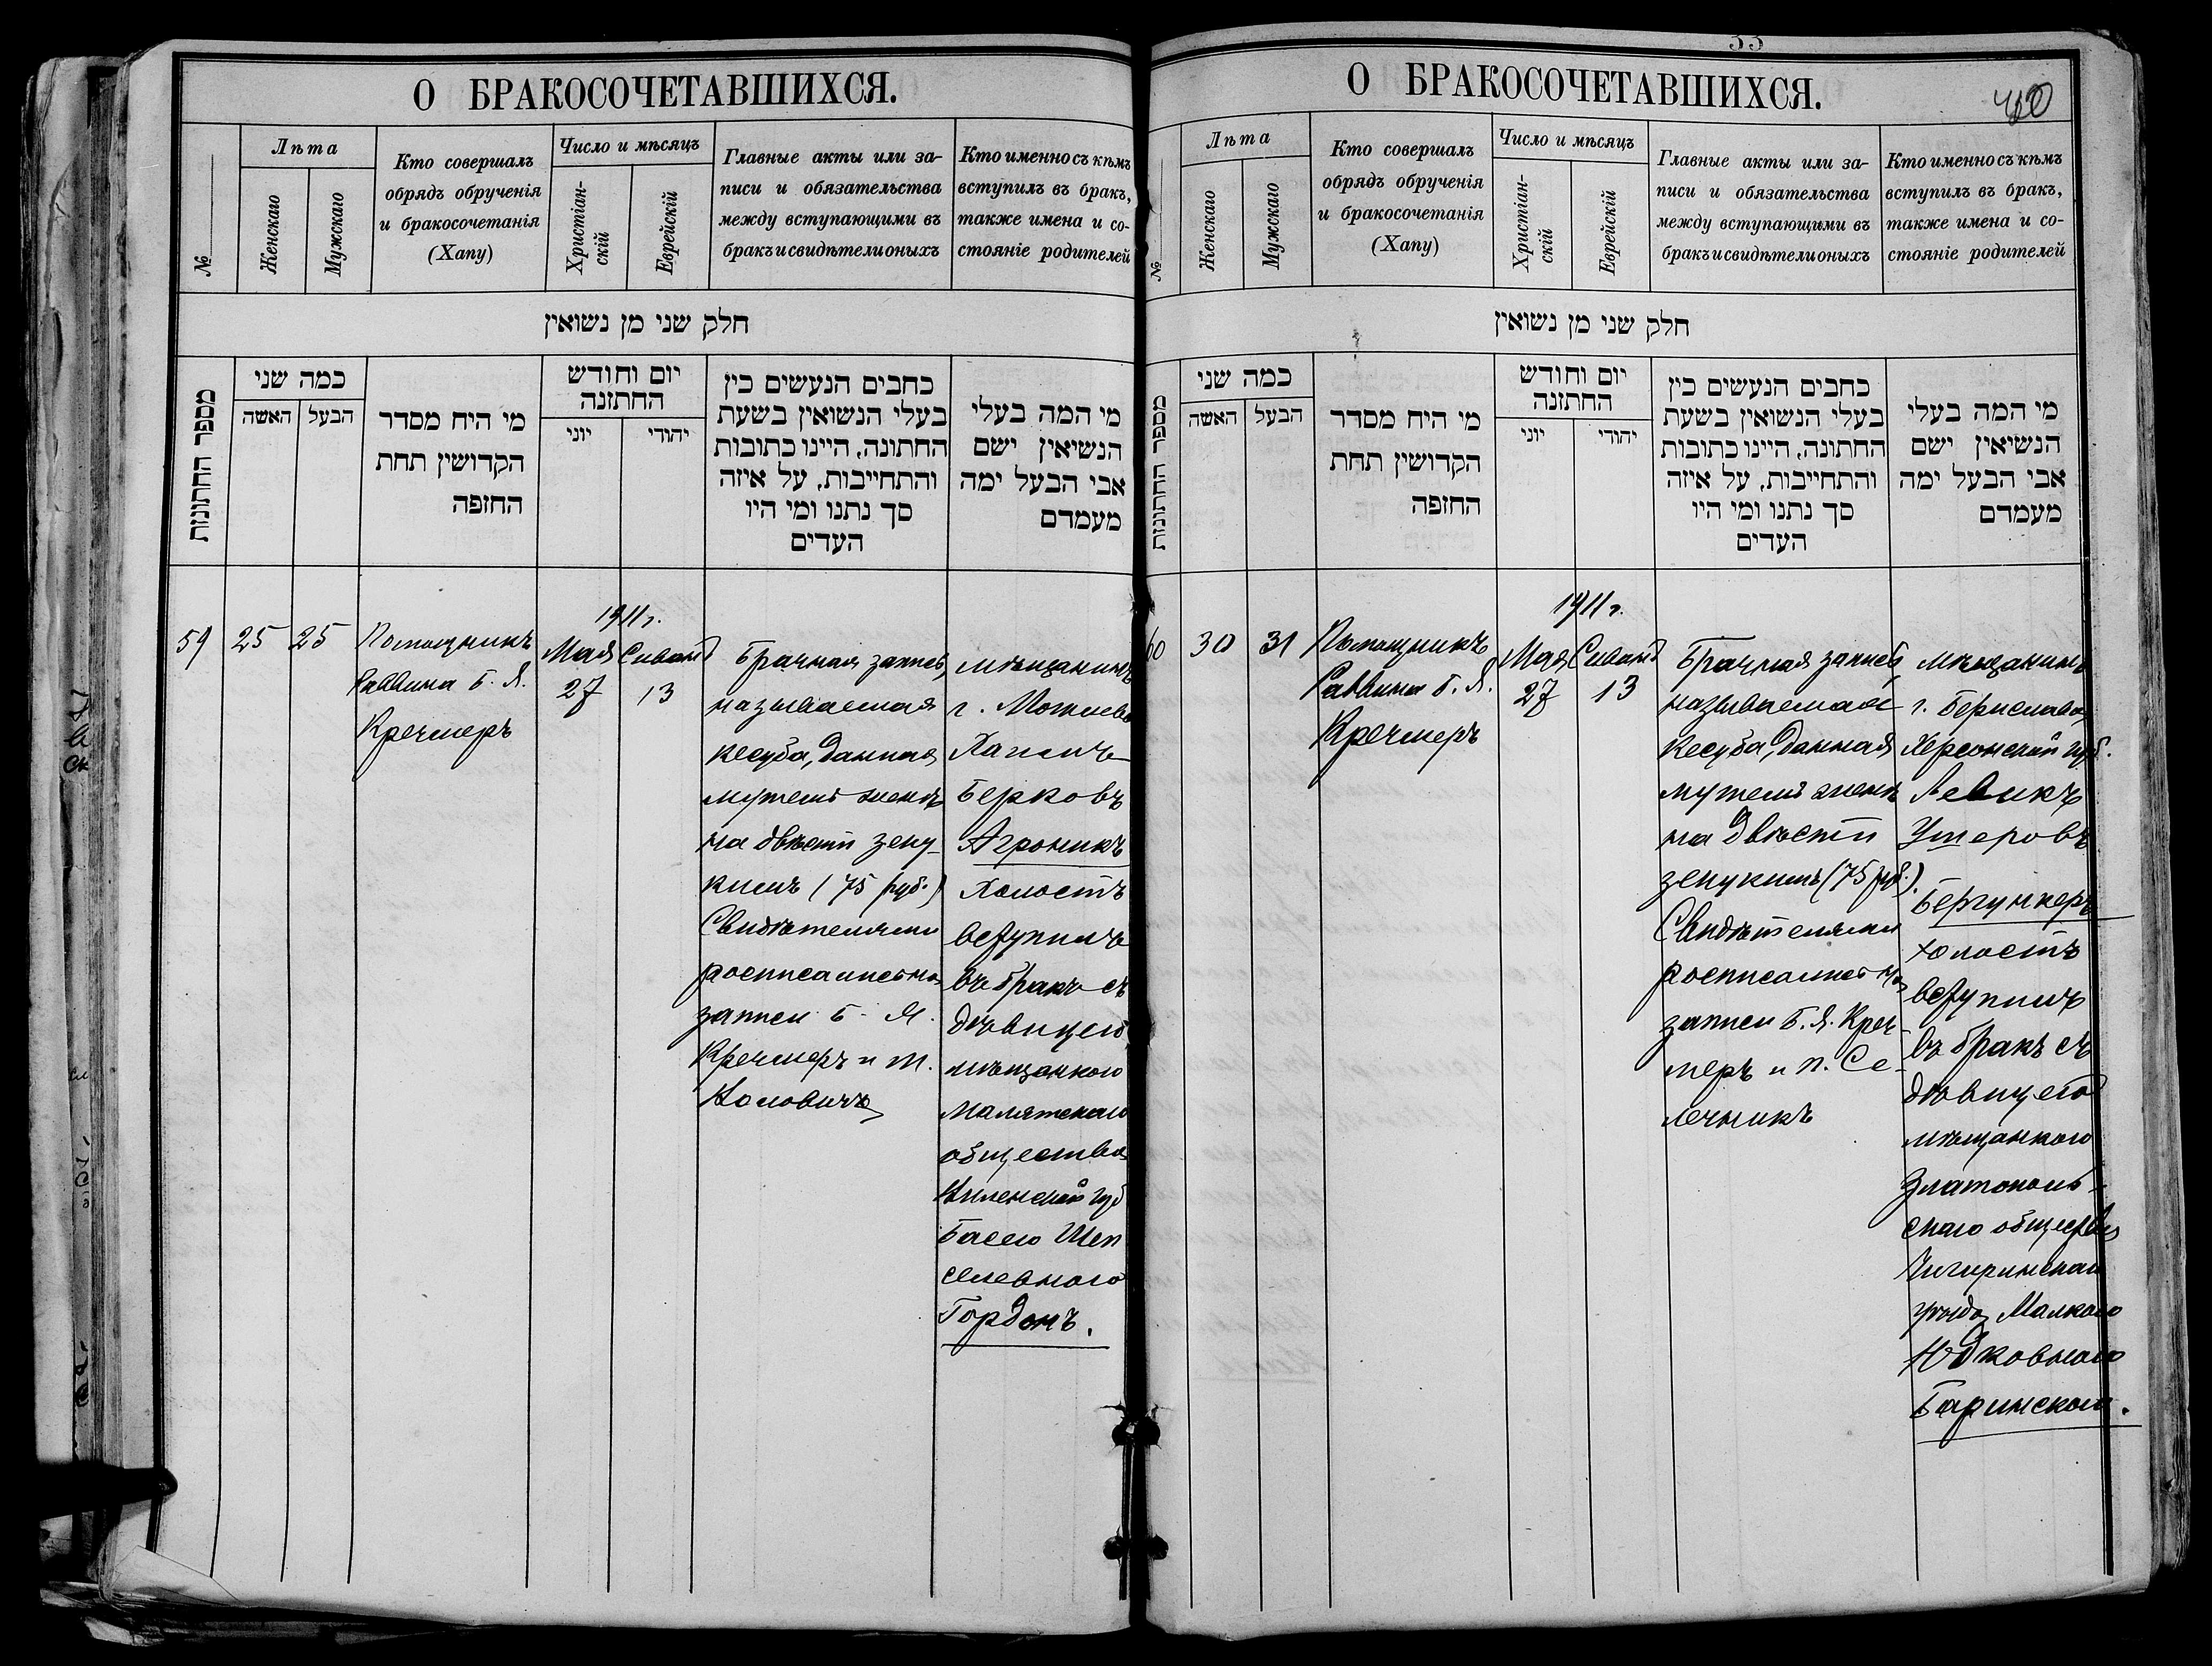 О БРАКОСОЧЕТАВШИХСЯ.
№
Лѣта
Женскаго
Мужскаго
Кто совершалъ
обрядъ обрученія
и бракосочетанія
(Хапу)
Число и мѣсяцъ
Христіан-
скій
Еврейскій
Главные акты или за-
писи и обязательства
между вступающими въ
бракъ и свидѣтели оныхъ
Кто именно съ кѣмъ
вступилъ въ бракъ,
также имена и со-
стояніе родителей
חלק שני מן נשואין
מספר החתונות
כמה שני
האשה
הבעל
מי היח מסדר
הקדושין תחת
החזפה
יום וחודש
החתזנה
יוני
יהודי
כחבים הנעשים כין
בעלי הנשואין בשעת
החתונה, היינו כתובות
והתחייבות, על איזה
סך נתנו ומי היו
העדים
מי המה בעלי
הנשיאין ישם
אבי הבעל ימה
מעמדם
59
25
25
Помощникъ
Раввина Б. Я.
Кречмеръ
1911 г.
Мая
27
Сивана
13
Брачная запись,
называемая
кесуба, данная
мужемъ женѣ
на двѣсти зену-
кимъ (75 руб.)
Свидѣтелями
росписались на
записи Б. Я.
Кречмеръ и М.
мѣщанинъ
Хаимъ
Берковъ
Агроникъ
холостъ
вступилъ
въ бракъ съ
дѣвицею
мѣщанкою
Малятскаго
общества
Виленской губ
Басею Шеп
селевною
Гордонъ.
33
О БРАКОСОЧЕТАВШИХСЯ.
№
Лѣта
Женскаго
Мужскаго
Кто совершалъ
обрядъ обрученія
и бракосочетанія
(Хапу)
Число и мѣсяцъ
Христіан-
скій
Еврейскій
Главные акты или за-
писи и обязательства
между вступающими въ
бракъ и свидѣтели оныхъ
Кто именно съ кѣмъ
вступилъ въ бракъ,
также имена и со-
стояніе родителей
חלק שני מן נשואין
מספר החתונות
כמה שני
האשה
הבעל
מי היח מסדר
הקדושין תחת
החזפה
יום וחודש
החתזנה
יוני
יהודי
כחבים הנעשים כין
בעלי הנשואין בשעת
החתונה, היינו כתובות
והתחייבות, על איזה
סך נתנו ומי היו
העדים
מי המה בעלי
הנשיאין ישם
אבי הבעל ימה
מעמדם
60
30
31
Помощникъ
Раввина Б. Я.
Кречмеръ
1911 г.
Мая
27
Сивана
13
Брачная запись,
называемая
кесуба, данная
мужемъ женѣ
на двѣсти
зенукимъ (75 руб.).
Свидѣтелями
росписались на
записи Б. Я. Креч-
меръ и П. Се-
лечникъ
мѣщанинъ
г. Берислава
Херсонской губ.
Левикъ
Ушеровъ
Бергункеръ
холостъ
вступилъ
въ бракъ съ
дѣвицею
мѣщанкою
Златополь-
скаго общества
Чигиринскаго
уѣзда Малкою
Юдковною
Баринскою.